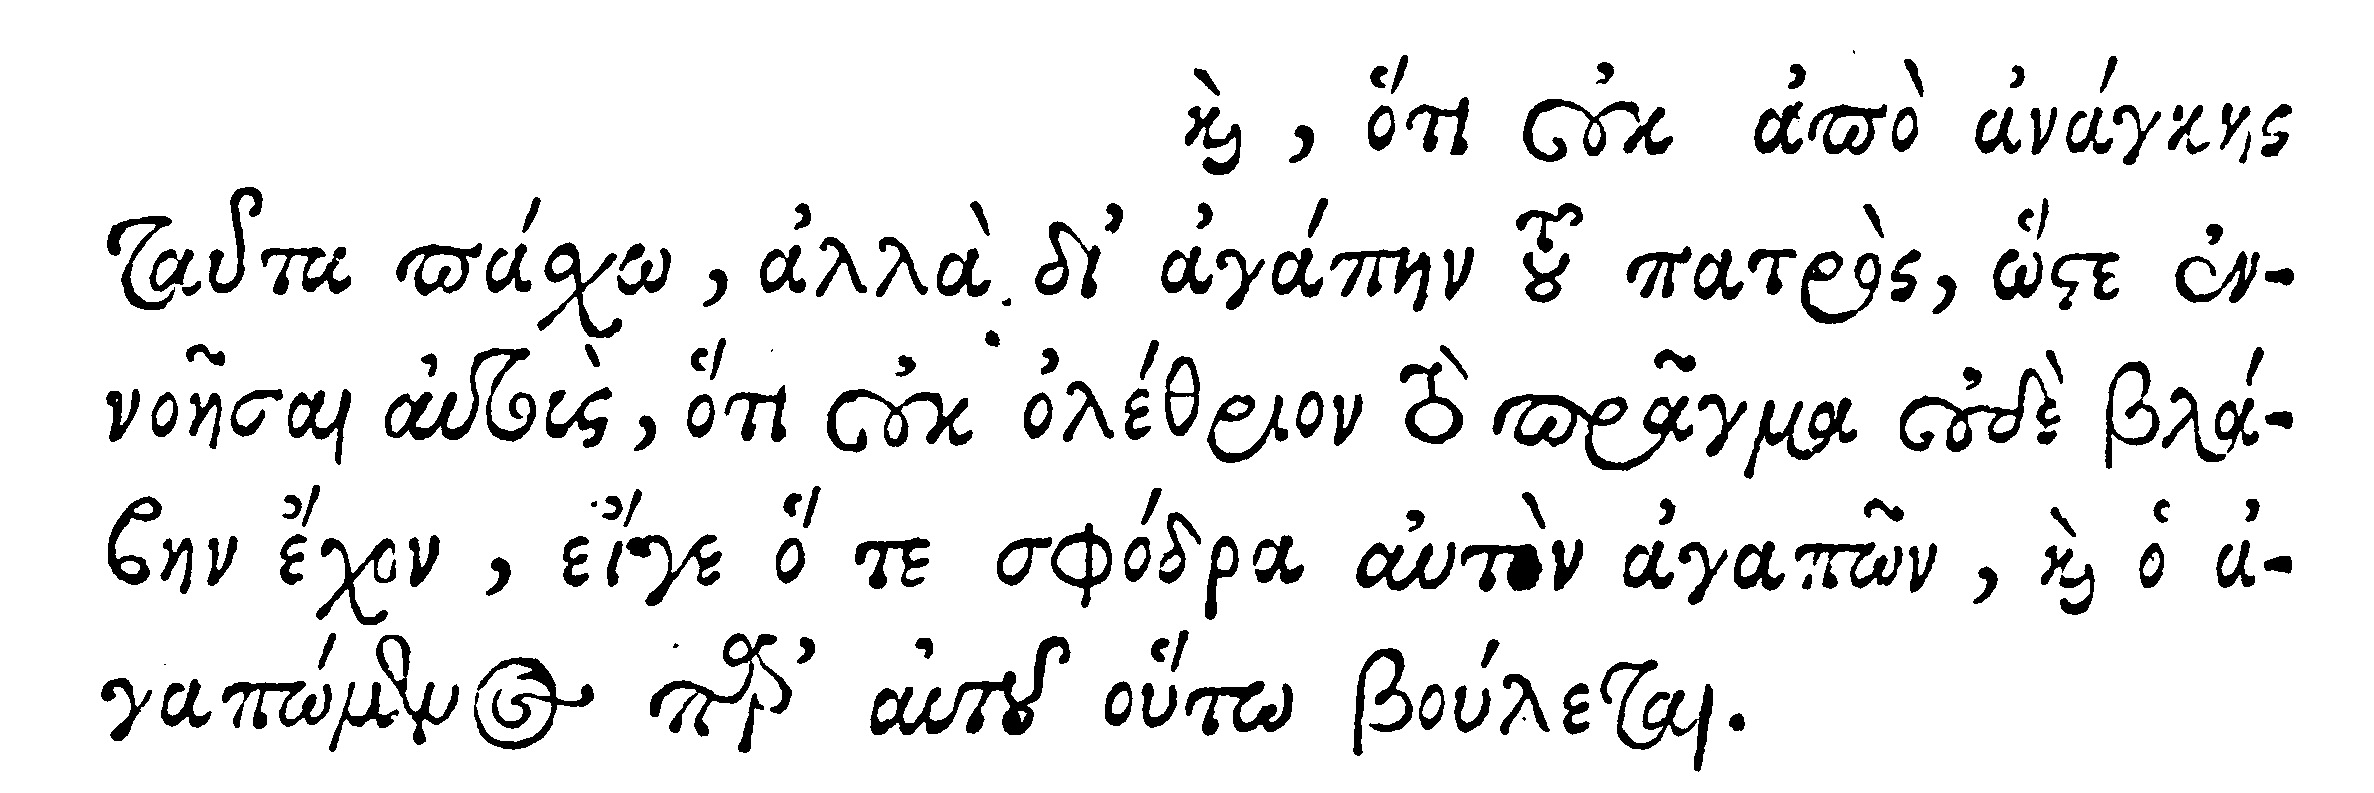 καὶ, ὅτι οὐκ ἀπὸ ἀνάγκης
ταῦτα πάσχω, ἀλλὰ δι' ἀγάπην τοῦ πατρὸς, ὥστε ἐν-
νοῆσαι αὐτοὶς, ὅτι οὐκ ὀλέθριον τὸ πρᾶγμα οὐδὲ βλά-
βην ἔχον, εἴγε ὅ τε σφόδρα αὐτὸν ἀγαπῶν, καὶ ὁ ἀ-
γαπώμενος παρ' αὐτοῦ οὕτω βούλεται.